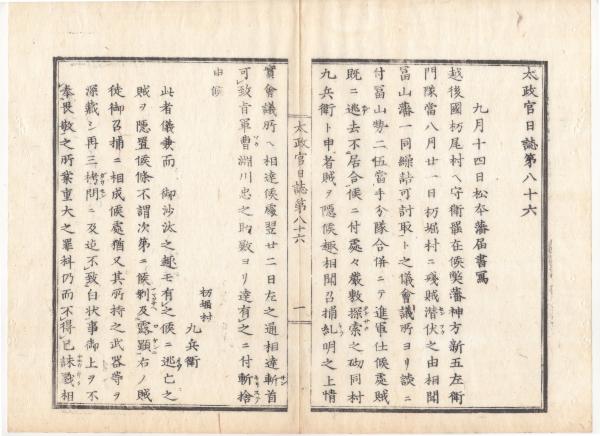 太政官日誌第八十六
九月十四日松本藩届書寫
越後國栃尾村ヘ守衛罷在候弊藩神方新五左衛
門隊當八月廿一日栃堀村ニ殘賊潜伏之由相聞
冨山藩一同繰詰可討取ト之儀會議所ヨリ談ニ
付冨山勢二伍當手分隊合併ニテ進軍仕候處賊
既ニ逃去不居合候ニ付處々嚴敷探索之砌同村
九兵衛ト申者賊ヲ隱候趣相聞召捕糺明之上情
太政官日誌第八十六
一
實會議所ヘ相達候處翌廿二日左之通相達斬首
可致旨軍曹淵川忠之助殿ヨリ達有之ニ付斬捨
申候
栃堀村
九兵衛
此者儀兼而御沙汰之趣モ有之候ニ逃亡之
賊ヲ隱置候條不謂次第ニ候剩及露顯右ノ賊
徒御召捕ニ相成候處猶又其所持之武器等ヲ
深藏シ再三拷問ニ及迄不致白状事御上ヲ不
奉畏敬之所業重大之罪科仍而不得已誅戮相